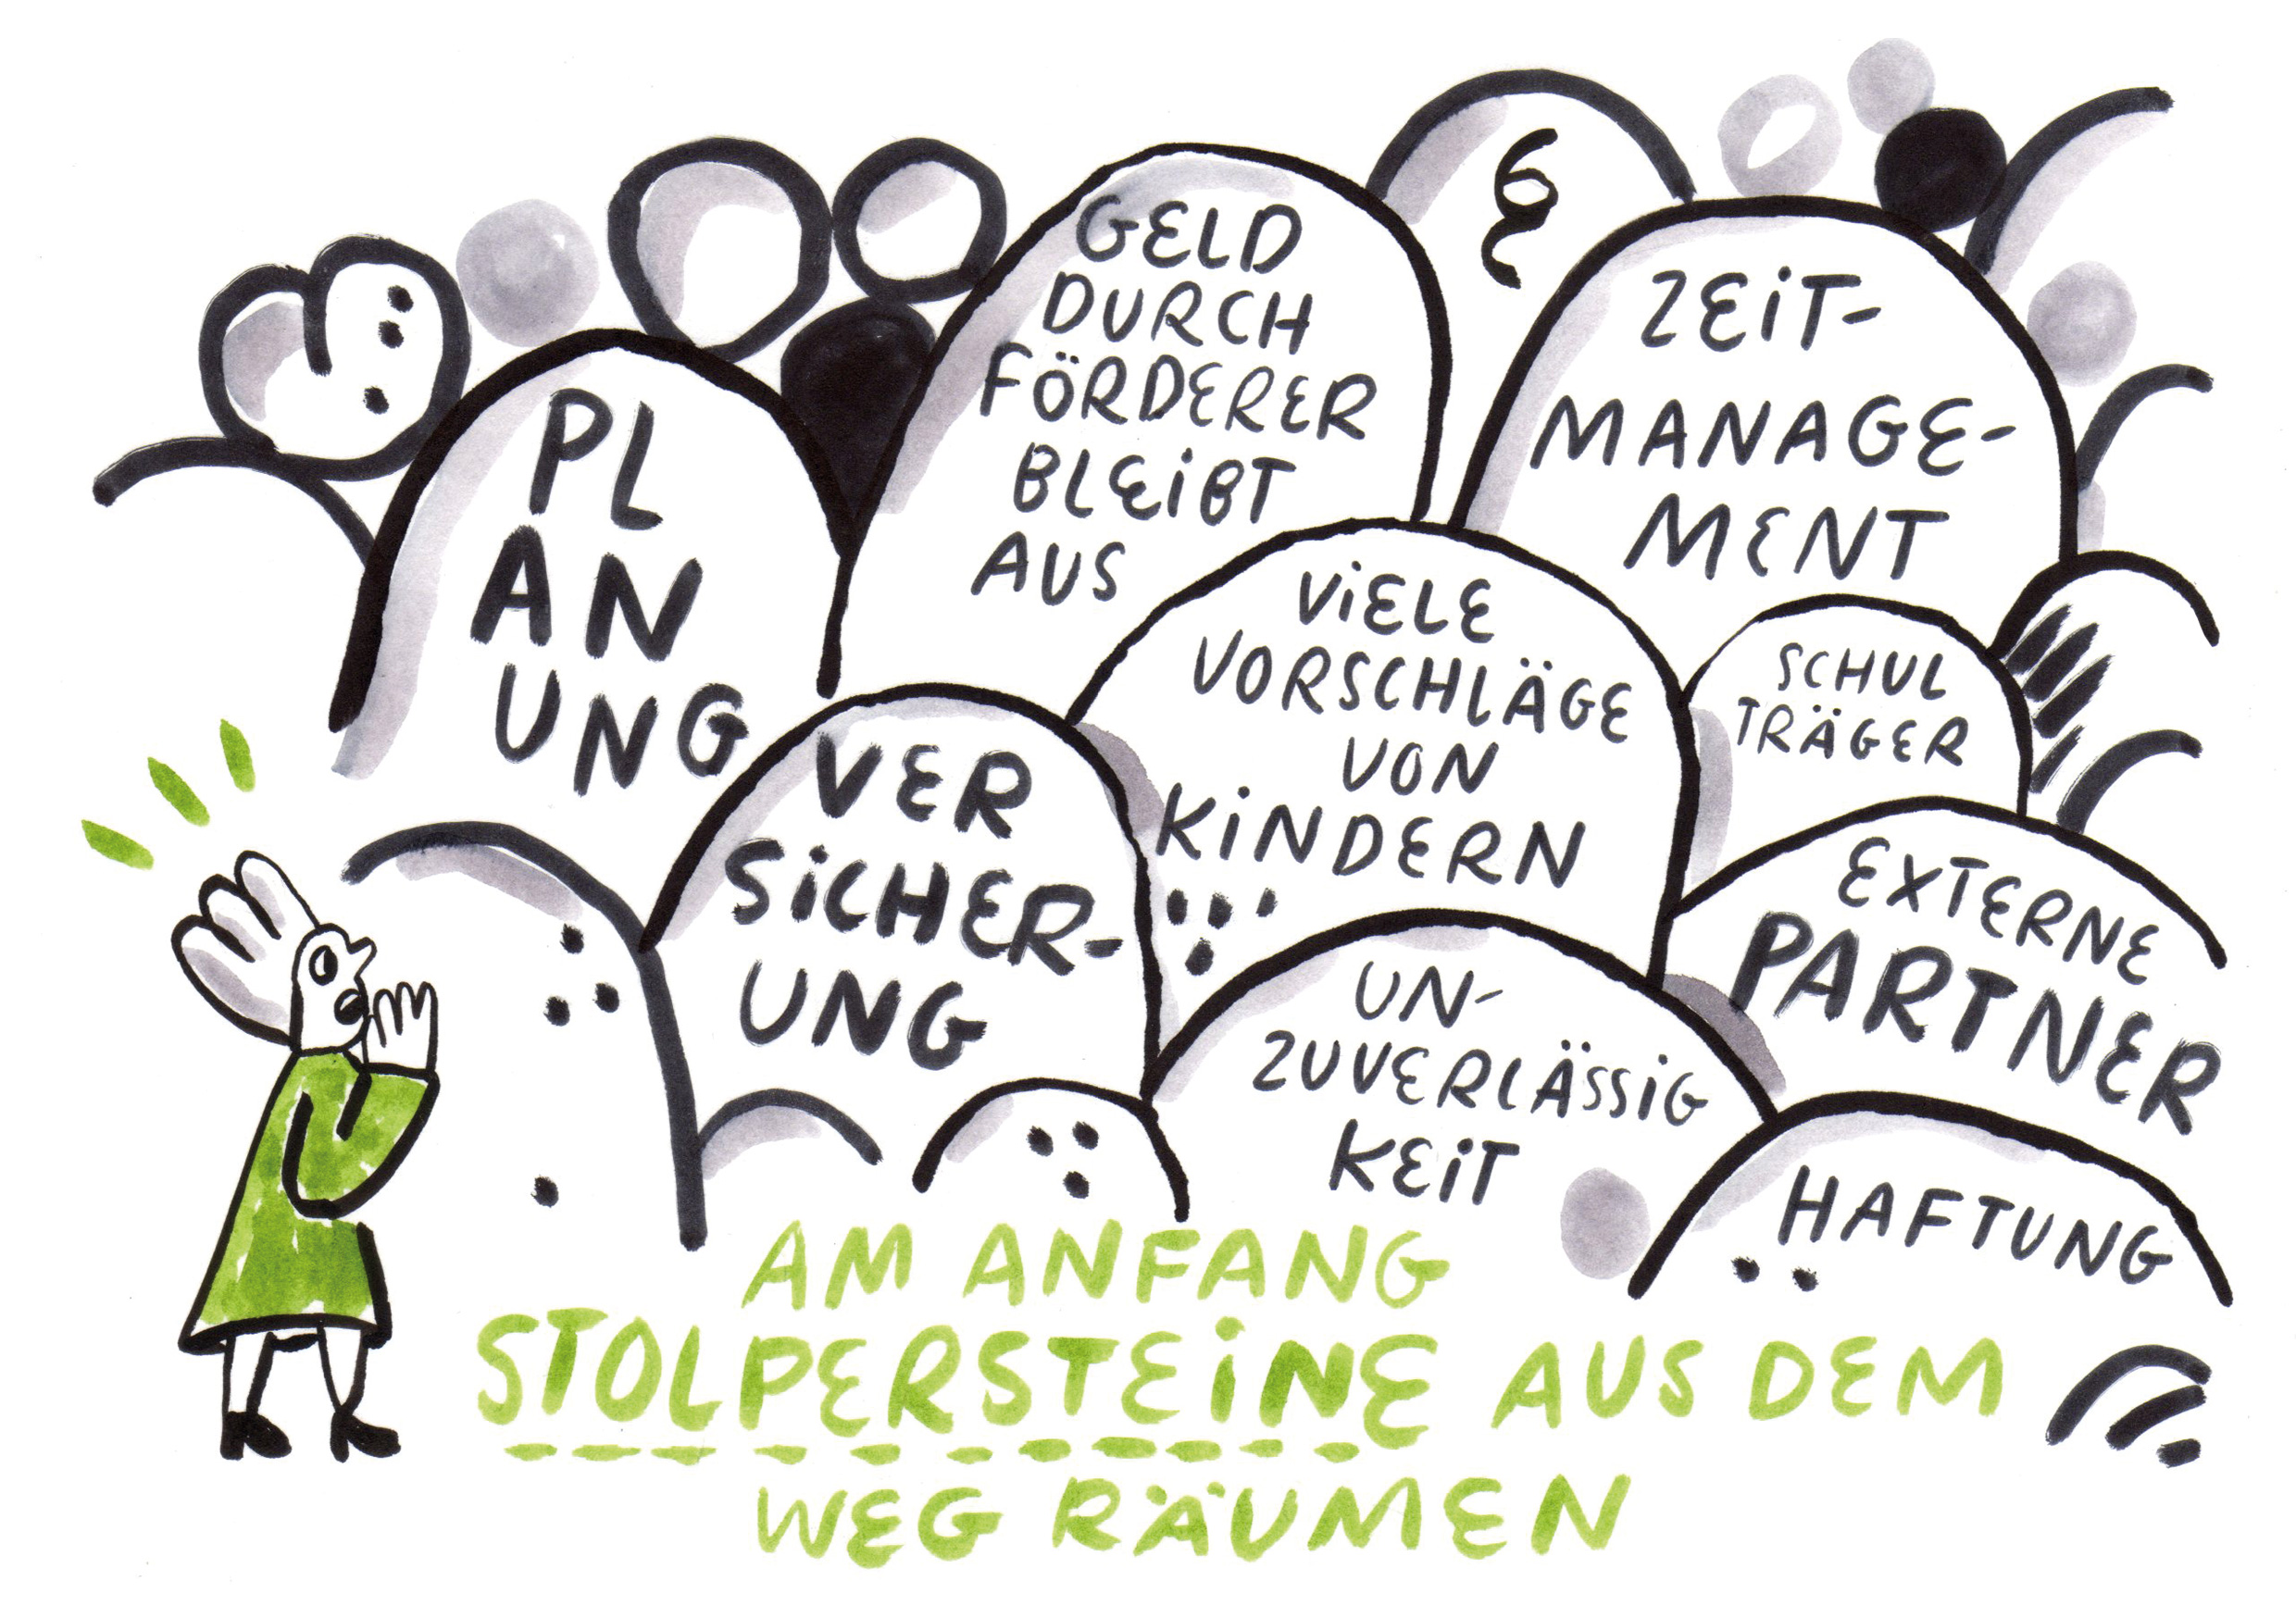 PL
AN
UNG
GELD
DURCH
FÖRDERER
BLEIBT
AUS
ZEIT-
MANAGE-
MENT
VER
SICHER-
UNG
VIELE
VORSCHLÄGE
VON
KINDERN
SCHUL
TRÄGER
EXTERNE
PARTNER
UN-
ZUVERLÄSSIG
KEIT
HAFTUNG
AM ANFANG
STOLPERSTEINE AUS DEM
WEG RÄUMEN